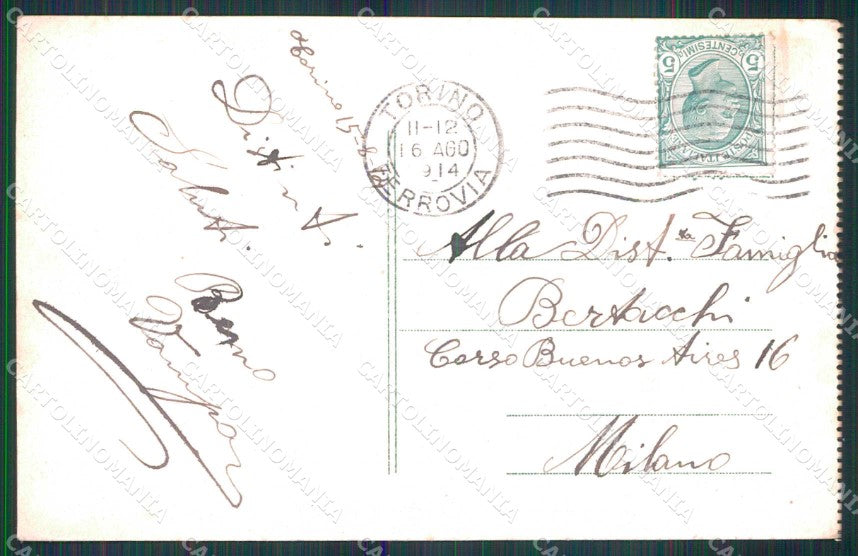 15-8-14
Distinti
Saluti.
TORINO
11-12
16 AGO
914
FERROVIA
5 CENTESIMI 5
POSTE ITALIANE
Alla Dist.ta Famiglia
Bertacchi
Corso Buenos Aires 16
Milano
CARTOLINOMANIA